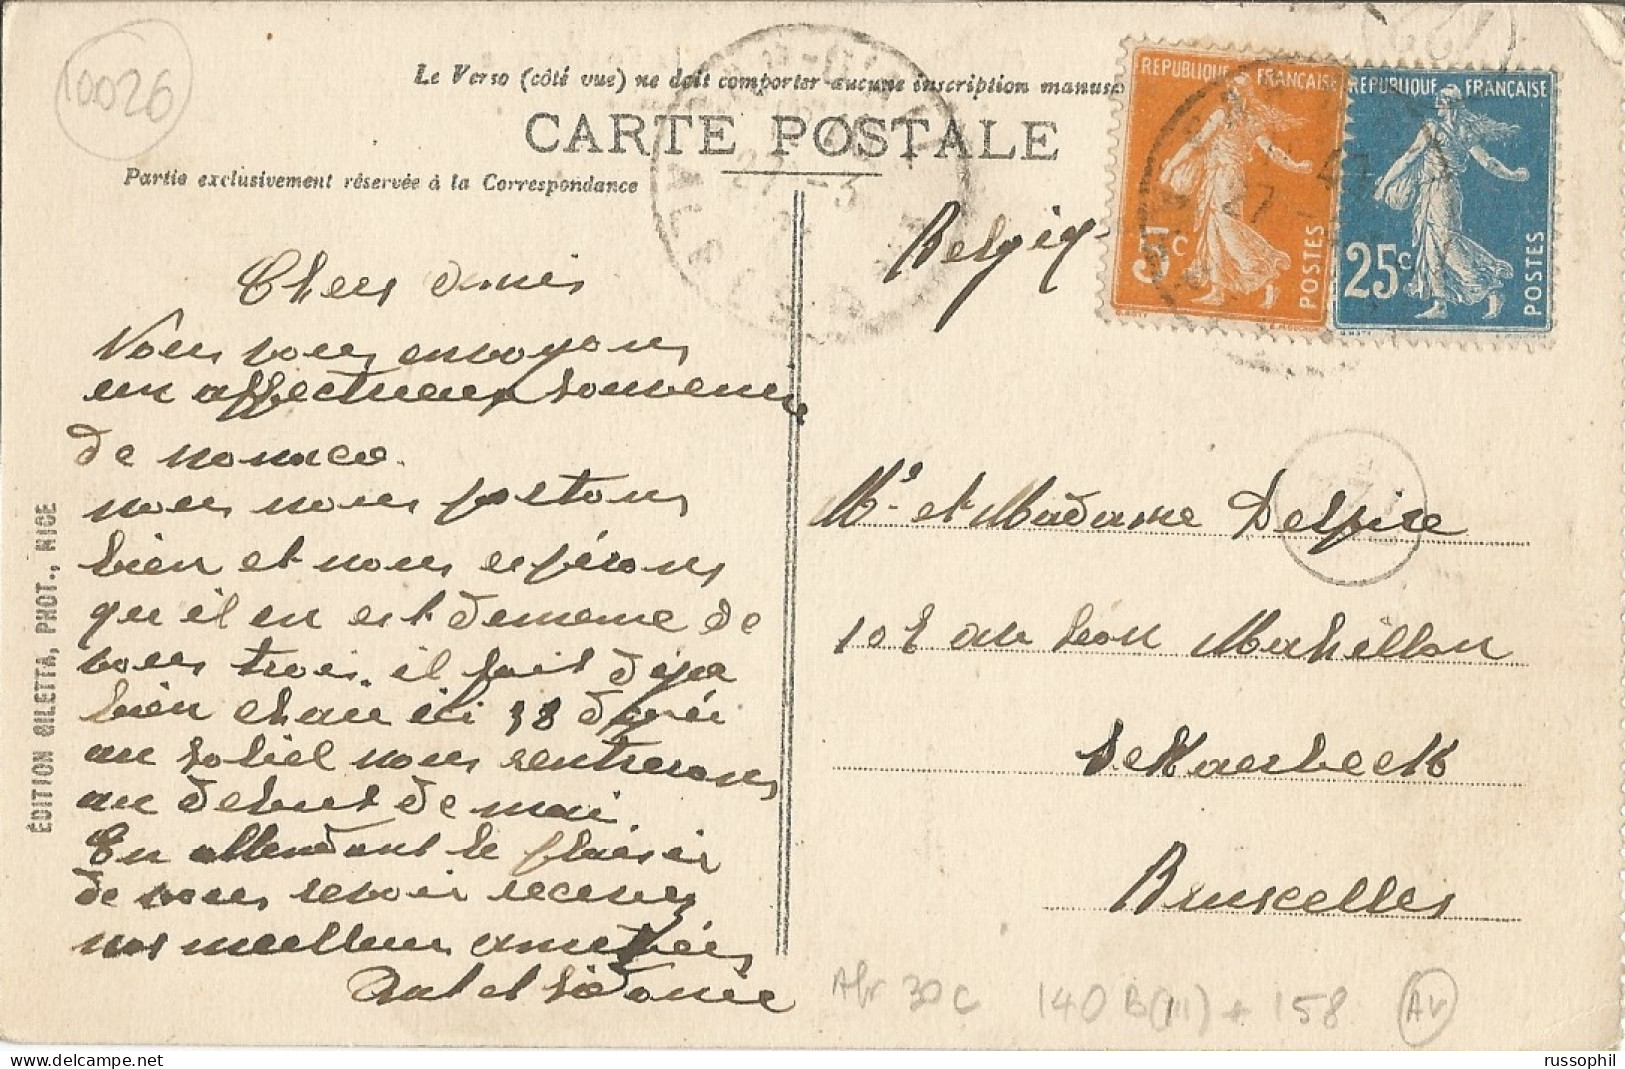 10026
Le Verso (côté vue) ne doit comporter aucune inscription manusc
CARTE POSTALE
Partie exclusivement réservée à la Correspondance
REPUBLIQUE FRANÇAISE
5c
POSTES
REPUBLIQUE FRANÇAISE
25c
POSTES
27 -3
Belgiq
Chers amis
Nous vous envoyons
un affectueux souvenir
de monaco.
nous nous portons
bien et nous espérons
qu'il en est de meme de
vous trois. il fait deja
bien chau ici 38 degrés
au soliel nous rentrerons
au debut de mai.
En attendant le plaisir
de vous revoir recevez
nos meilleurs amitiées
et Sidonie
Mr et Madame Despire
au Léon Mahillon
Bruxelles
ÉDITION GILETTA, PHOT., NICE
Afr 30c 140 B(III) + 158 AV
russophil